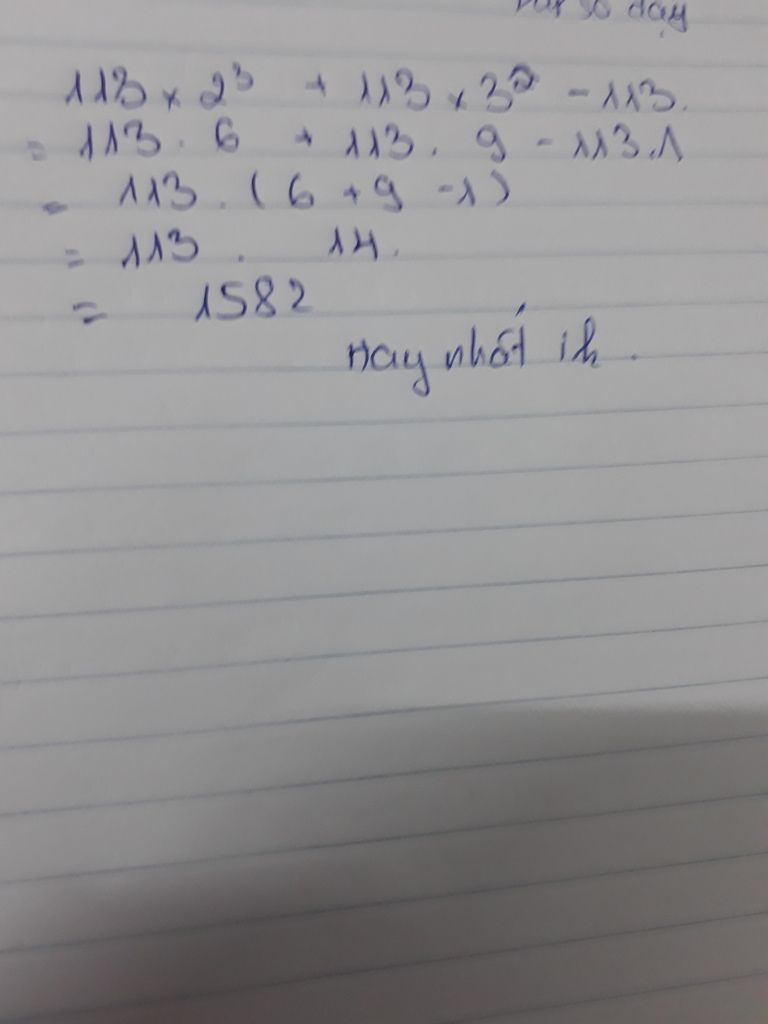 số dạy
113 × 2³ + 113 × 3² - 113.
= 113 . 6 + 113 . 9 - 113.1
= 113 . ( 6 + 9 - 1 )
= 113 . 14.
= 1582
Hay nhất ik .